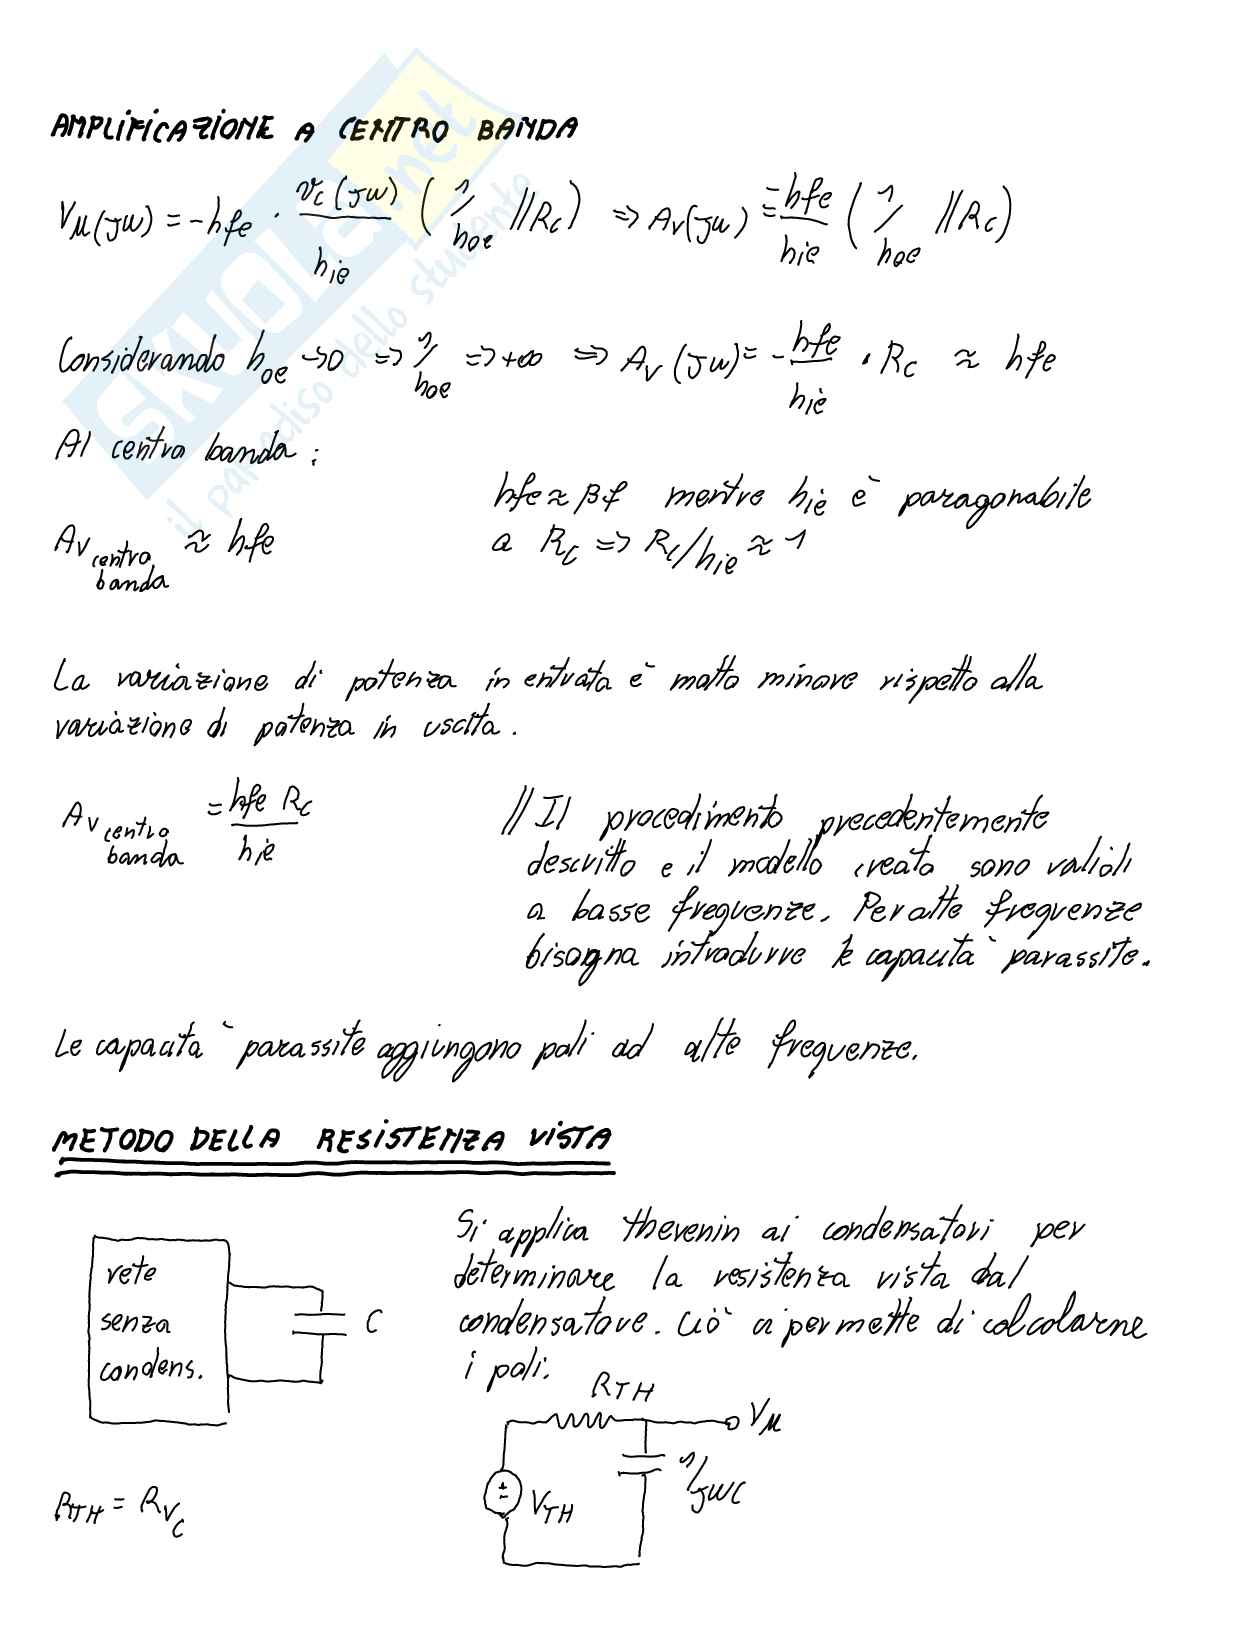 AMPLIFICAZIONE A CENTRO BANDA
Vu(jw) = -hfe · vc(jw)/hie (1/hoe // Rc) => Av(jw) = -hfe/hie (1/hoe // Rc)
Considerando hoe → 0 => 1/hoe => +∞ => Av(jw) = -hfe/hie · Rc ≈ hfe
Al centro banda:
hfe ≈ βf mentre hie è paragonabile
a Rc => Rc/hie ≈ 1
Av centro banda ≈ hfe
La variazione di potenza in entrata è molto minore rispetto alla
variazione di potenza in uscita.
Av centro banda = hfe Rc/hie
// Il procedimento precedentemente
descritto e il modello creato sono validi
a basse frequenze. Per alte frequenze
bisogna introdurre le capacità parassite.
Le capacità parassite aggiungono poli ad alte frequenze.
METODO DELLA RESISTENZA VISTA
rete
senza
condens.
C
Si applica thevenin ai condensatori per
determinare la resistenza vista dal
condensatore. Ciò ci permette di calcolarne
i poli.
RTH
Vu
1/jwC
VTH
RTH = RVc
SKUOLA.net
il paradiso dello studente